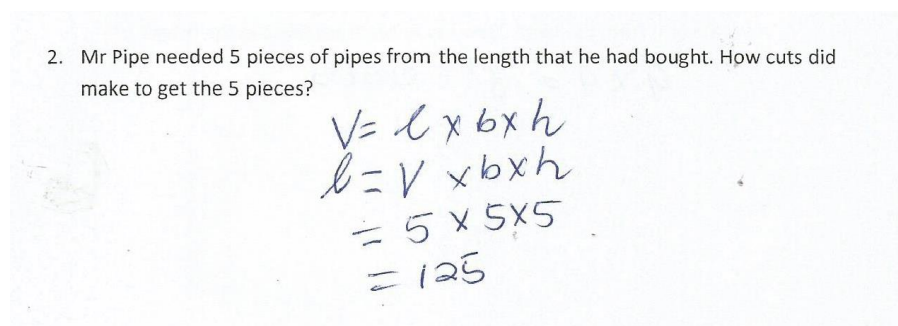 2. Mr Pipe needed 5 pieces of pipes from the length that he had bought. How cuts did
make to get the 5 pieces?
V= l x b x h
l = V x b x h
= 5 x 5 x 5
= 125